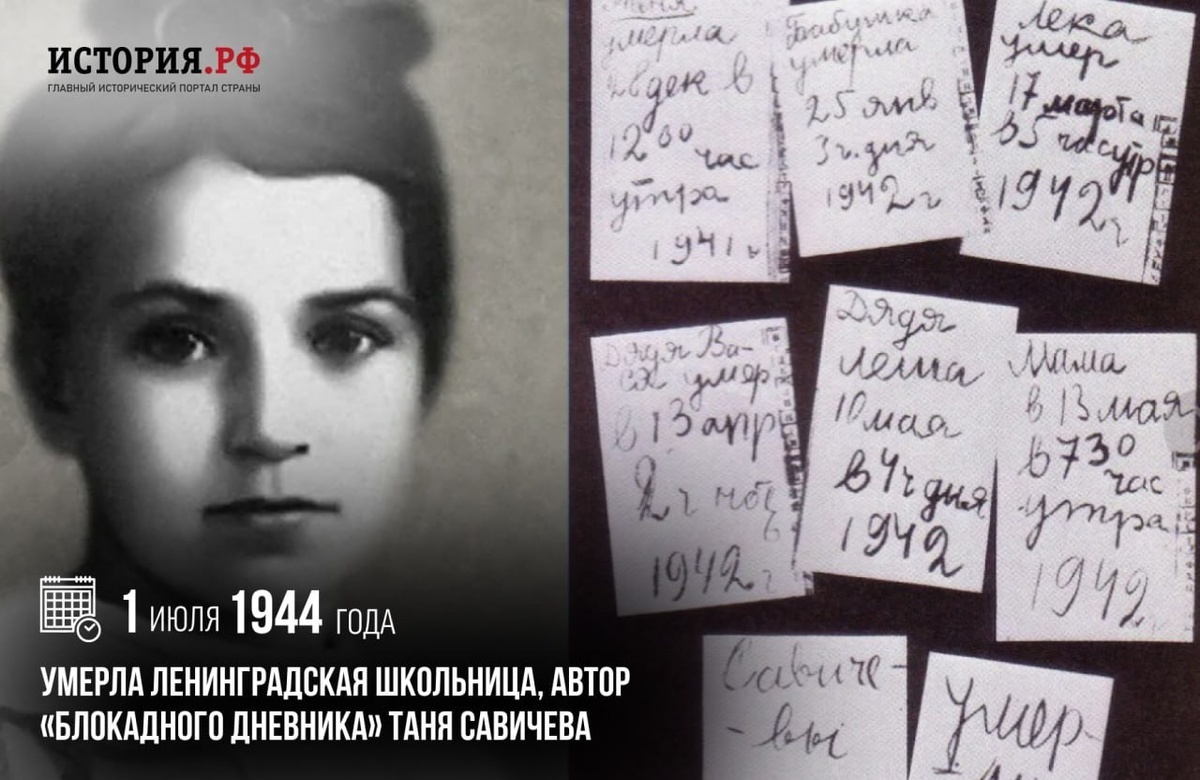 ИСТОРИЯ.РФ
ГЛАВНЫЙ ИСТОРИЧЕСКИЙ ПОРТАЛ СТРАНЫ
1 ИЮЛЯ 1944 ГОДА
УМЕРЛА ЛЕНИНГРАДСКАЯ ШКОЛЬНИЦА, АВТОР
«БЛОКАДНОГО ДНЕВНИКА» ТАНЯ САВИЧЕВА
умерла
28 дек в
12 00 час
утра
1941 г
Бабушка
умерла
25 янв
3 ч. дня
1942 г
Лека
умер
17 марта
в 5 час утр
1942 г
Дядя Ва-
ся умер
в 13 апр
2 ч ноч
1942 г
Дядя
Леша
10 мая
в 4 ч дня
1942
Мама
в 13 мая
в 730
час
утра
1942
Савиче-
-вы
Умер-